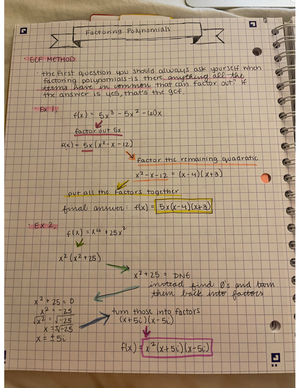 Factoring Polynomials
GCF METHOD
the first question you should always ask yourself when
factoring polynomials is there anything all the
terms have in common that can factor out? If
the answer is yes, that's the gcf.
Ex 1.
f(x) = 5x³ - 5x² - 60x
factor out 5x
f(x) = 5x (x² - x - 12)
Factor the remaining quadratic
x² - x - 12 = (x-4)(x+3)
put all the factors together
final answer: f(x) = 5x(x-4)(x+3)
Ex 2.
f(x) = x⁴ + 25x²
x² (x² + 25)
x² + 25 = DNE
instead find 0's and turn
them back into factors
x² + 25 = 0
x² = -25
√x² = √-25
x = √-25
x = ± 5i
turn those into factors
(x+5i)(x-5i)
f(x) = x²(x+5i)(x-5i)